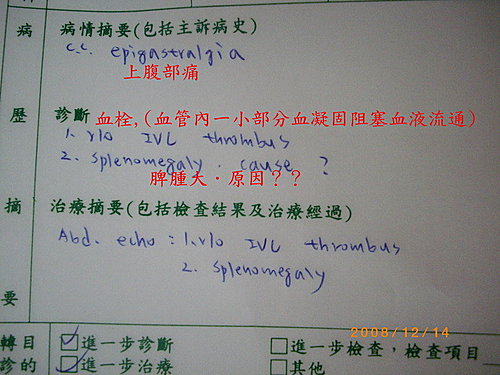 病 病情摘要(包括主訴病史)
c.c. epigastralgia
上腹部痛
歷 診斷 血栓,(血管內一小部分血凝固阻塞血液流通)
1. r/o IVC thrombus
2. splenomegaly. cause ?
脾腫大‧原因??
摘 治療摘要(包括檢查結果及治療經過)
Abd. echo : 1. r/o IVC thrombus
2. splenomegaly
要
2008/12/14
轉 目 ☑進一步診斷 □進一步檢查,檢查項目
診 的 ☑進一步治療 □其他